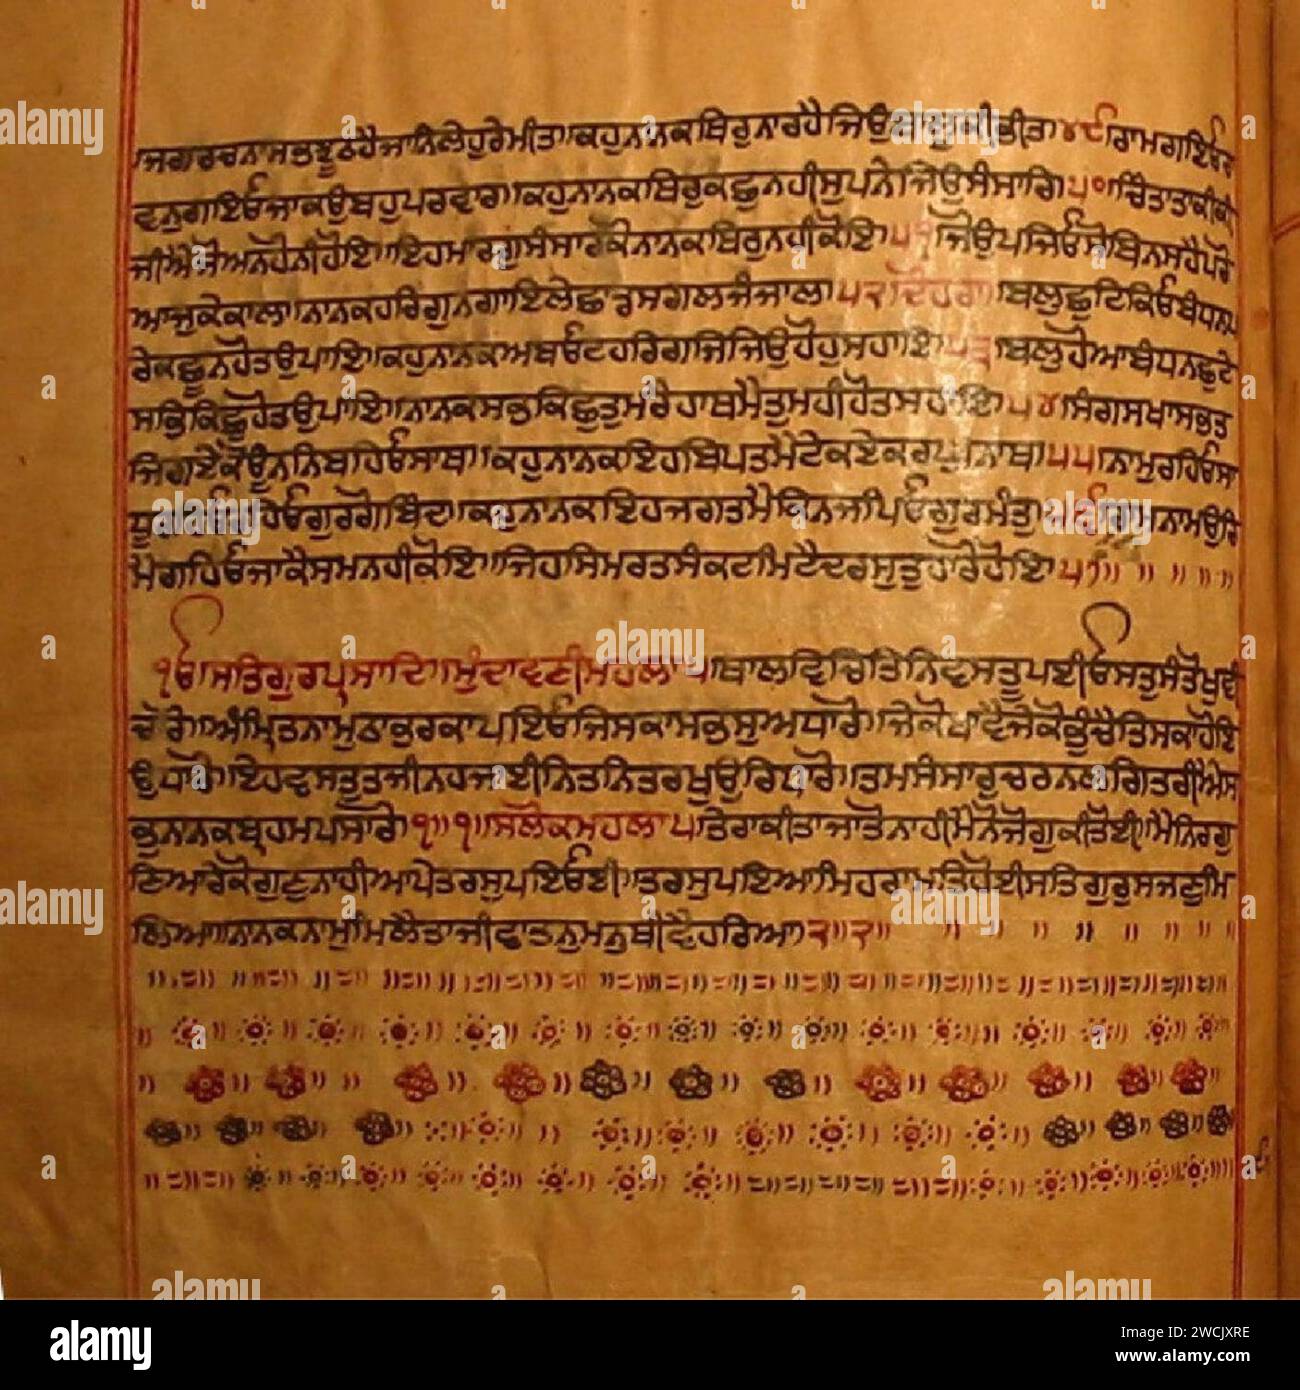 ਜਗਰਚਨਾਸਭਝੂਠਹੈਜਾਨਿਲੇਹੁਰੇਮੀਤ॥ਕਹੁਨਾਨਕਥਿਰੁਨਾਰਹੈਜਿਉਬਾਲੂਕੀਭੀਤਿ੪੯॥ਰਾਮਗਇਓਰਾ
ਵਨੁਗਇਓਜਾਕਉਬਹੁਪਰਵਾਰੁ॥ਕਹੁਨਾਨਕਥਿਰੁਕਛੁਨਹੀਸੁਪਨੇਜਿਉਸੰਸਾਰਿ॥੫੦॥ਚਿੰਤਾਤਾਕੀਕੀ
ਜੀਐਜੋਅਨਹੋਨੀਹੋਇ॥ਇਹਮਾਰਗੁਸੰਸਾਰਕੋਨਾਨਕਥਿਰੁਨਹੀਕੋਇ॥੫੧॥ਜੋਉਪਜਿਓਸੋਬਿਨਸਹੈਪਰੋ
ਆਜੁਕੇਕਾਲ॥ਨਾਨਕਹਰਿਗੁਨਗਾਇਲੇਛਾਡਸਗਲਜੰਜਾਲ॥੫੨॥ਦੋਹਰਾ॥ਬਲੁਛੁਟਕਿਓਬੰਧਨਪ
ਰੇਕਛੂਨਹੋਤਉਪਾਇ॥ਕਹੁਨਾਨਕਅਬਓਟਹਰਿਗਜਿਜਿਉਹੋਹੁਸਹਾਇ॥੫੩॥ਬਲੁਹੋਆਬੰਧਨਛੁਟੇ
ਸਭੁਕਿਛੁਹੋਤਉਪਾਇ॥ਨਾਨਕਸਭੁਕਿਛੁਤੁਮਰੇਹਾਥਮੈਤੁਮਹੀਹੋਤਸਹਾਇ॥੫੪॥ਸੰਗਸਖਾਸਭਤ
ਜਿਗਏਕੋਊਨਨਿਬਹਿਓਸਾਥ॥ਕਹੁਨਾਨਕਇਹਬਿਪਤਮੈਟੇਕਏਕਰਘੁਨਾਥ॥੫੫॥ਨਾਮੁਰਹਿਓਸਾ
ਧੂਰਹਿਓਰਹਿਓਗੁਰਗੋਬਿੰਦ॥ਕਹੁਨਾਨਕਇਹਜਗਤਮੈਕਿਨਜਪਿਓਗੁਰਮੰਤੁ॥੫੬॥ਰਾਮਨਾਮਉਰਿ
ਮੈਗਹਿਓਜਾਕੈਸਮਨਹੀਕੋਇ॥ਜਿਹਸਿਮਰਤਸੰਕਟਮਿਟੈਦਰਸੁਤੁਹਾਰੋਹੋਇ॥੫੭॥ ॥ ॥ ॥ ॥
ੴਸਤਿਗੁਰਪ੍ਰਸਾਦਿ॥ਮੁੰਦਾਵਣੀਮਹਲਾ੫॥ਥਾਲਵਿਚਿਤਿਨਿਵਸਤੂਪਈਓਸਤੁਸੰਤੋਖੁਵੀ
ਚਾਰੋ॥ਅੰਮ੍ਰਿਤਨਾਮੁਠਾਕੁਰਕਾਪਇਓਜਿਸਕਾਸਭਸੁਅਧਾਰੋ॥ਜੇਕੋਖਾਵੈਜੇਕੋਭੁੰਚੈਤਿਸਕਾਹੋਇ
ਉਧਾਰੋ॥ਏਹਵਸਤੁਤਜੀਨਹਜਾਈਨਿਤਨਿਤਰਖੁਉਰਿਧਾਰੋ॥ਤਮਸੰਸਾਰੁਚਰਨਲਗਿਤਰੀਐਸ
ਭੁਨਾਨਕਬ੍ਰਹਮਪਸਾਰੋ॥੧॥੧॥ਸਲੋਕਮਹਲਾ੫॥ਤੇਰਾਕੀਤਾਜਾਤੋਨਾਹੀਮੈਨੋਜੋਗੁਕੀਤੋਈ॥ਮੈਨਿਰਗੁ
ਣਿਆਰੇਕੋਗੁਣੁਨਾਹੀਆਪੇਤਰਸੁਪਇਓਈ॥ਤਰਸੁਪਇਆਮਿਹਰਾਮਤਿਹੋਈਸਤਿਗੁਰੁਸਜਣੁਮਿ
ਲਿਆ॥ਨਾਨਕਨਾਮੁਮਿਲੈਤਾਜੀਵਾਤਨੁਮਨੁਥੀਵੈਹਰਿਆ॥੨॥੨॥ ॥ ॥ ॥ ॥ ॥ ॥ ॥
alamy
Image ID: 2WCJXRE
www.alamy.com